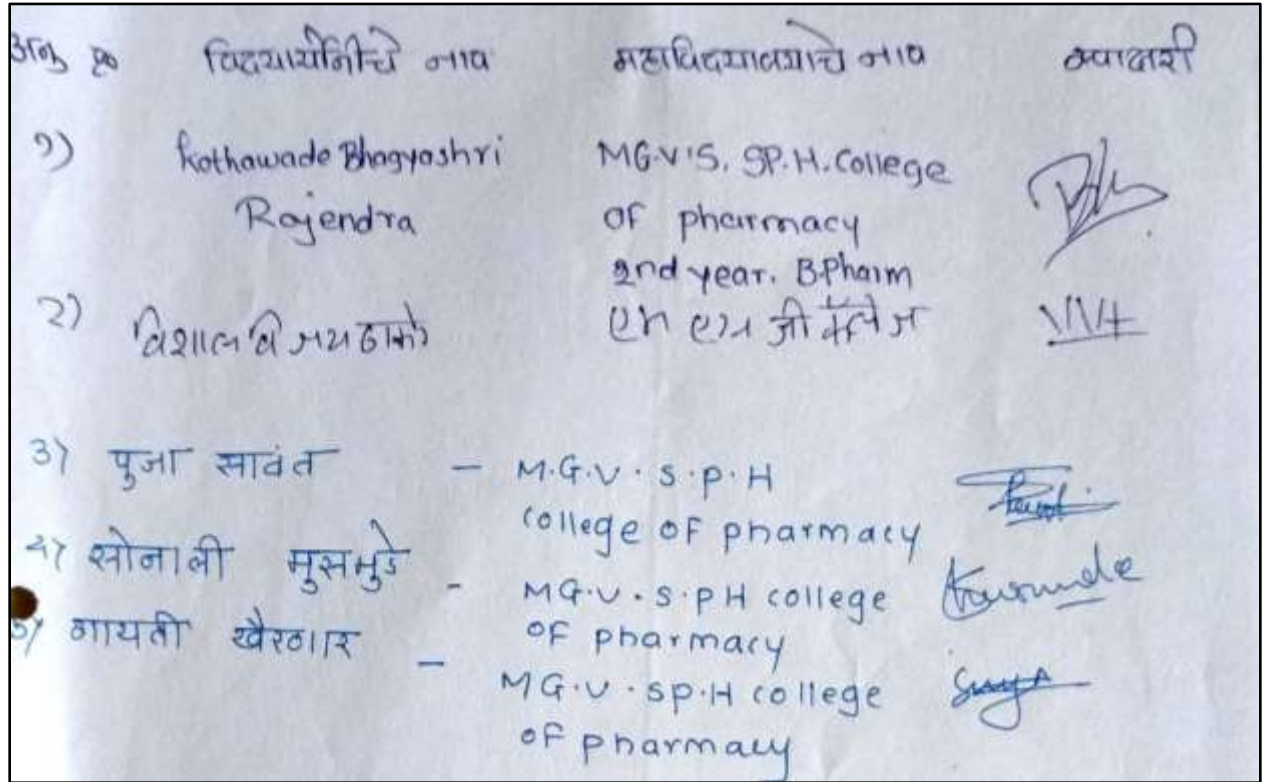 अनु क्र विद्यार्थीनीचे नाव महाविद्यालयाचे नाव स्वाक्षरी
१) Kothawade Bhagyashri MG.V'S. SP.H. College
Rajendra of pharmacy
2nd year. B.Pharm
२) विशाल विजय ठाकरे एम एस जी कॉलेज
३) पुजा सावंत - M.G.V.S.P.H
college of pharmacy
४) सोनाली मुसमुडे - MG.V.S.PH college
of pharmacy
५) गायती खैरनार - MG.V.SP.H college
of pharmacy